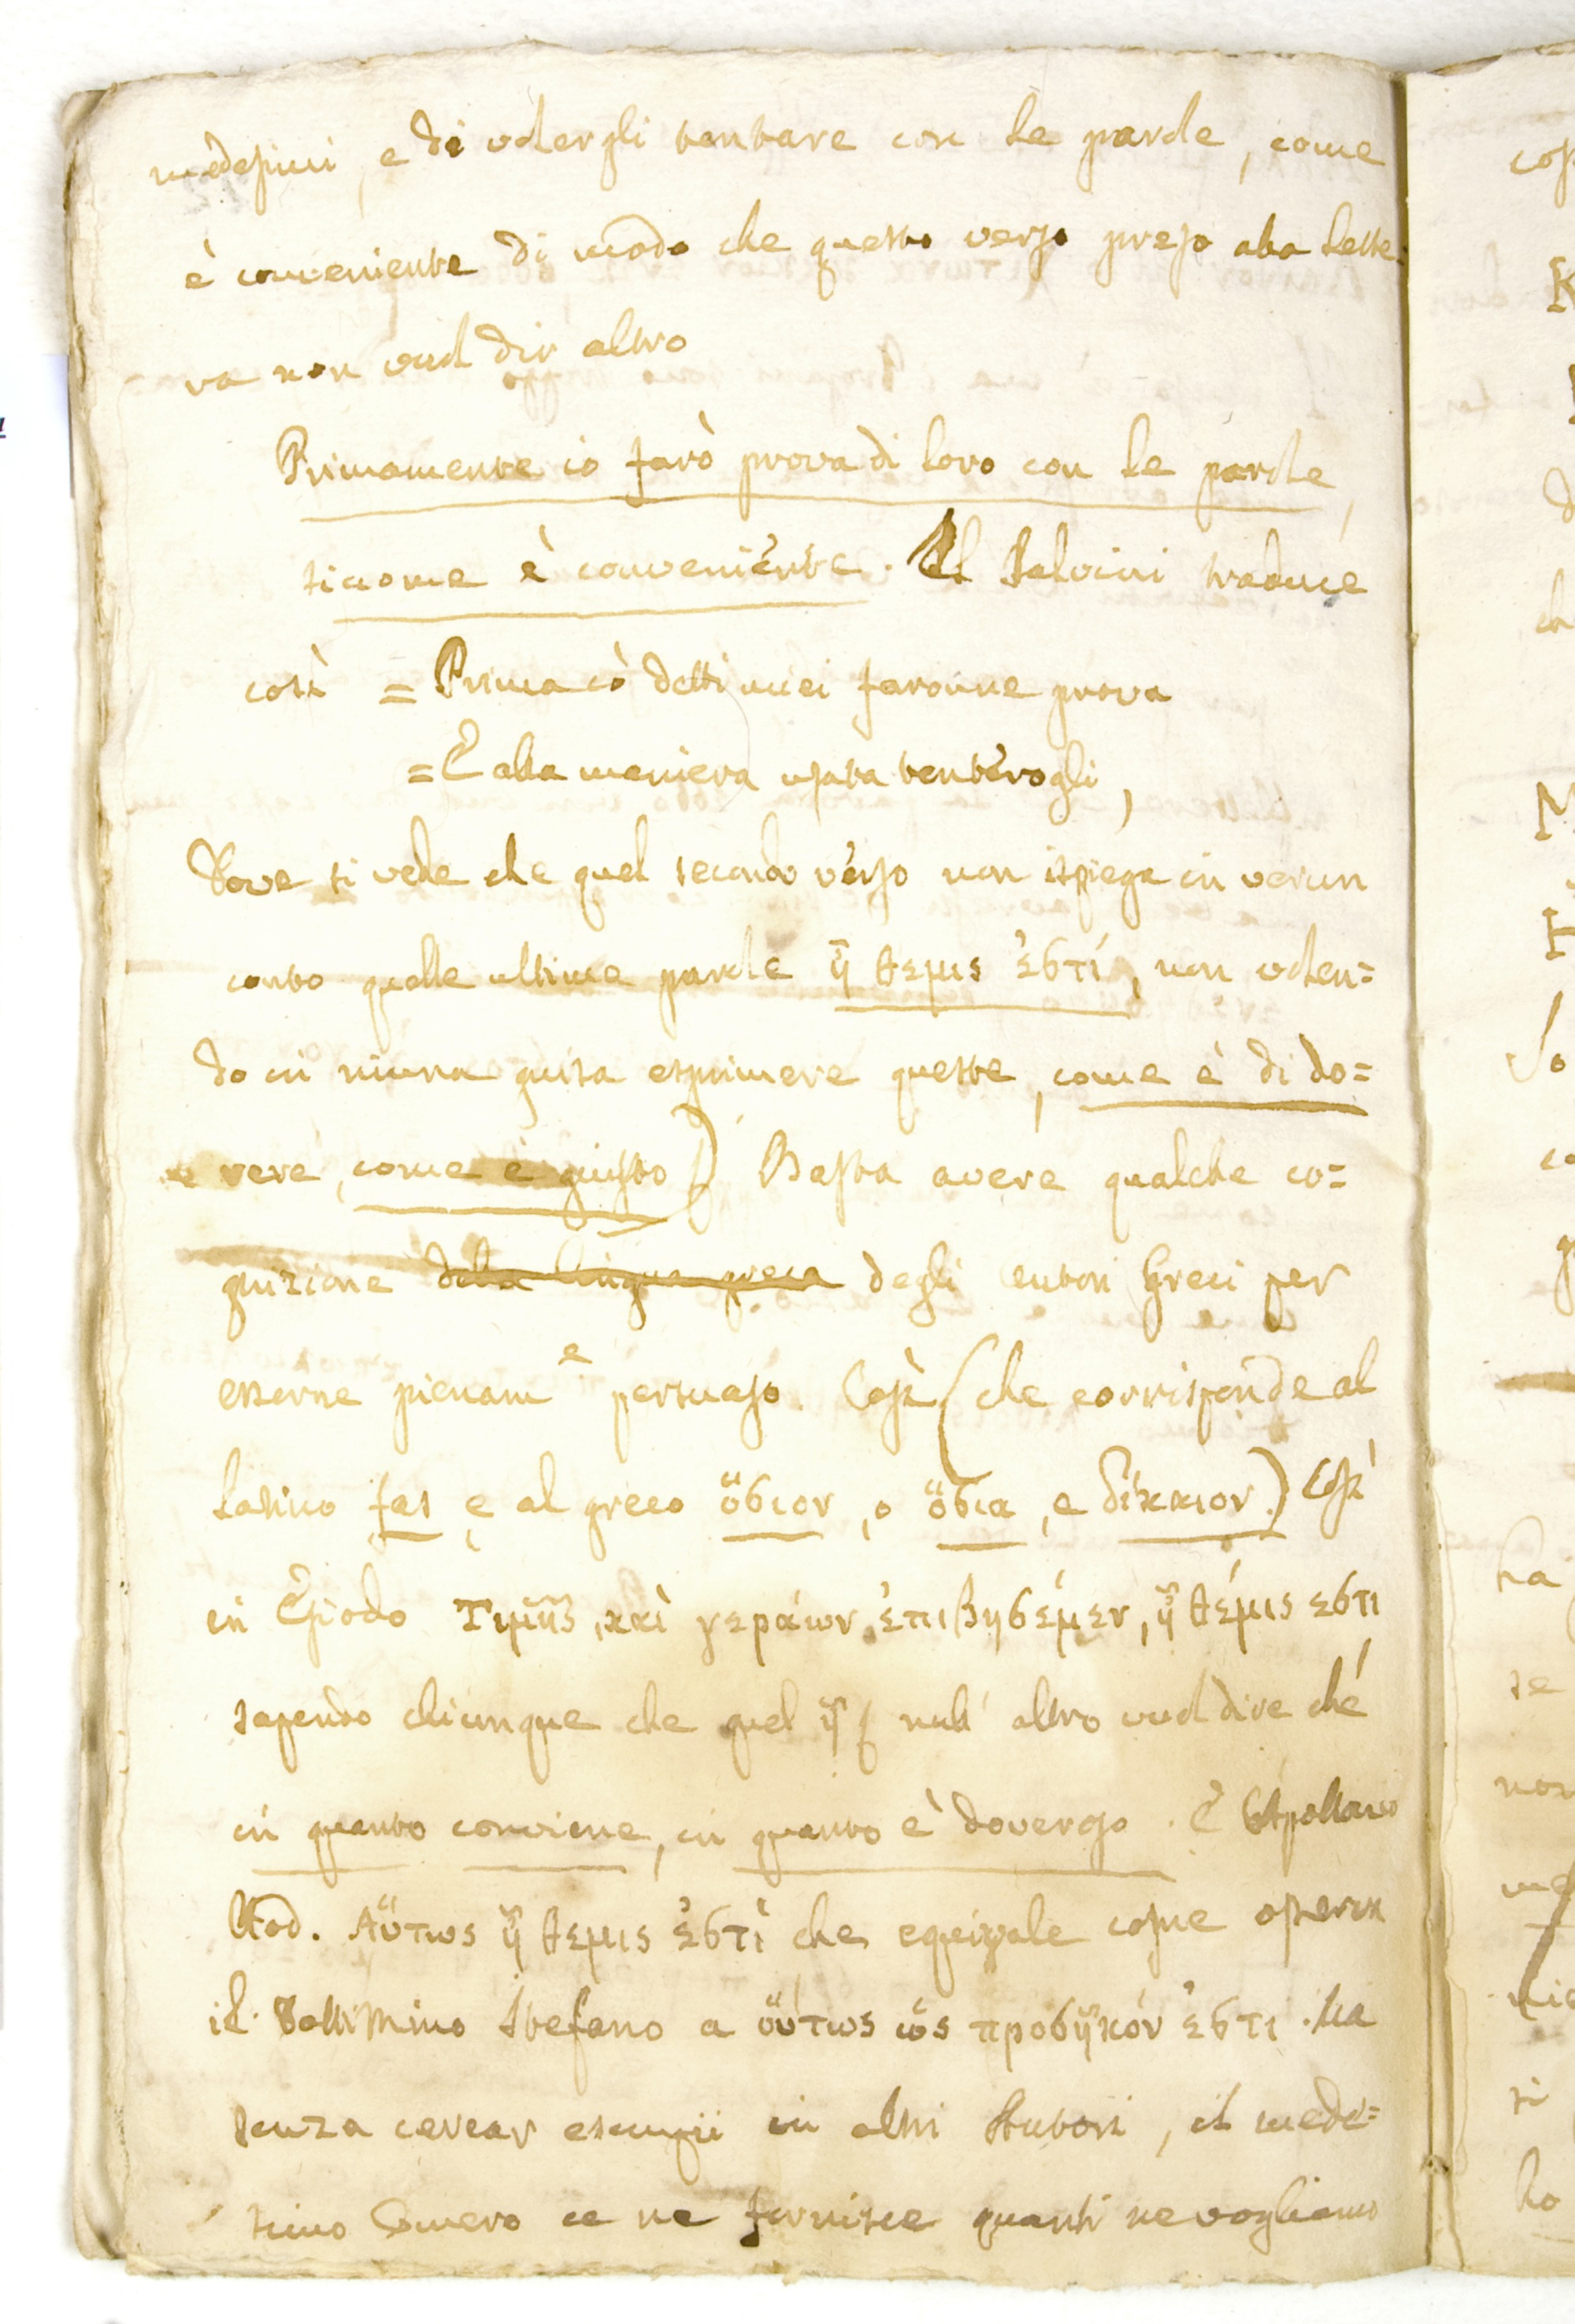 medesimi, e di volergli tentare con le parole, come
è conveniente di modo che questo verso preso alla lette=
ra non vuol dir altro
Primamente io farò prova di loro con le parole,
siccome è conveniente. Il Salvini traduce
così = Prima co' detti miei faronne prova
= E alla maniera usata tenterogli,
Dove si vede che quel secondo verso non ispiega in verun
conto quelle ultime parole ἣ θεμις ἐστί, non volen=
do in niuna guisa esprimere queste, come è di do=
vere, come è giusto) Basta avere qualche co=
gnizione della lingua greca degli autori Greci per
esserne pienam e persuaso. Così (che corrisponde al
latino fas e al greco ὅσιον, o ὅσια, e δίκαιον.) Così
in Esiodo Τιμῆς, καὶ γεράων, ἐπιβησέμεν, ἣ θέμις εστι
sapendo chiunque che quel ἣ null' altro vuol dire che
in quanto conviene, in quanto è doveroso. E Apollonio
Rod. Αὕτως ἣ θεμις ἐστὶ che equivale come osserva
il dottissimo Stefano a οὕτως ὡς προσῆκόν ἐστι. Ma
senza cercar esempii in altri Autori, il mede=
simo Omero ce ne fornisce quanti ne vogliamo